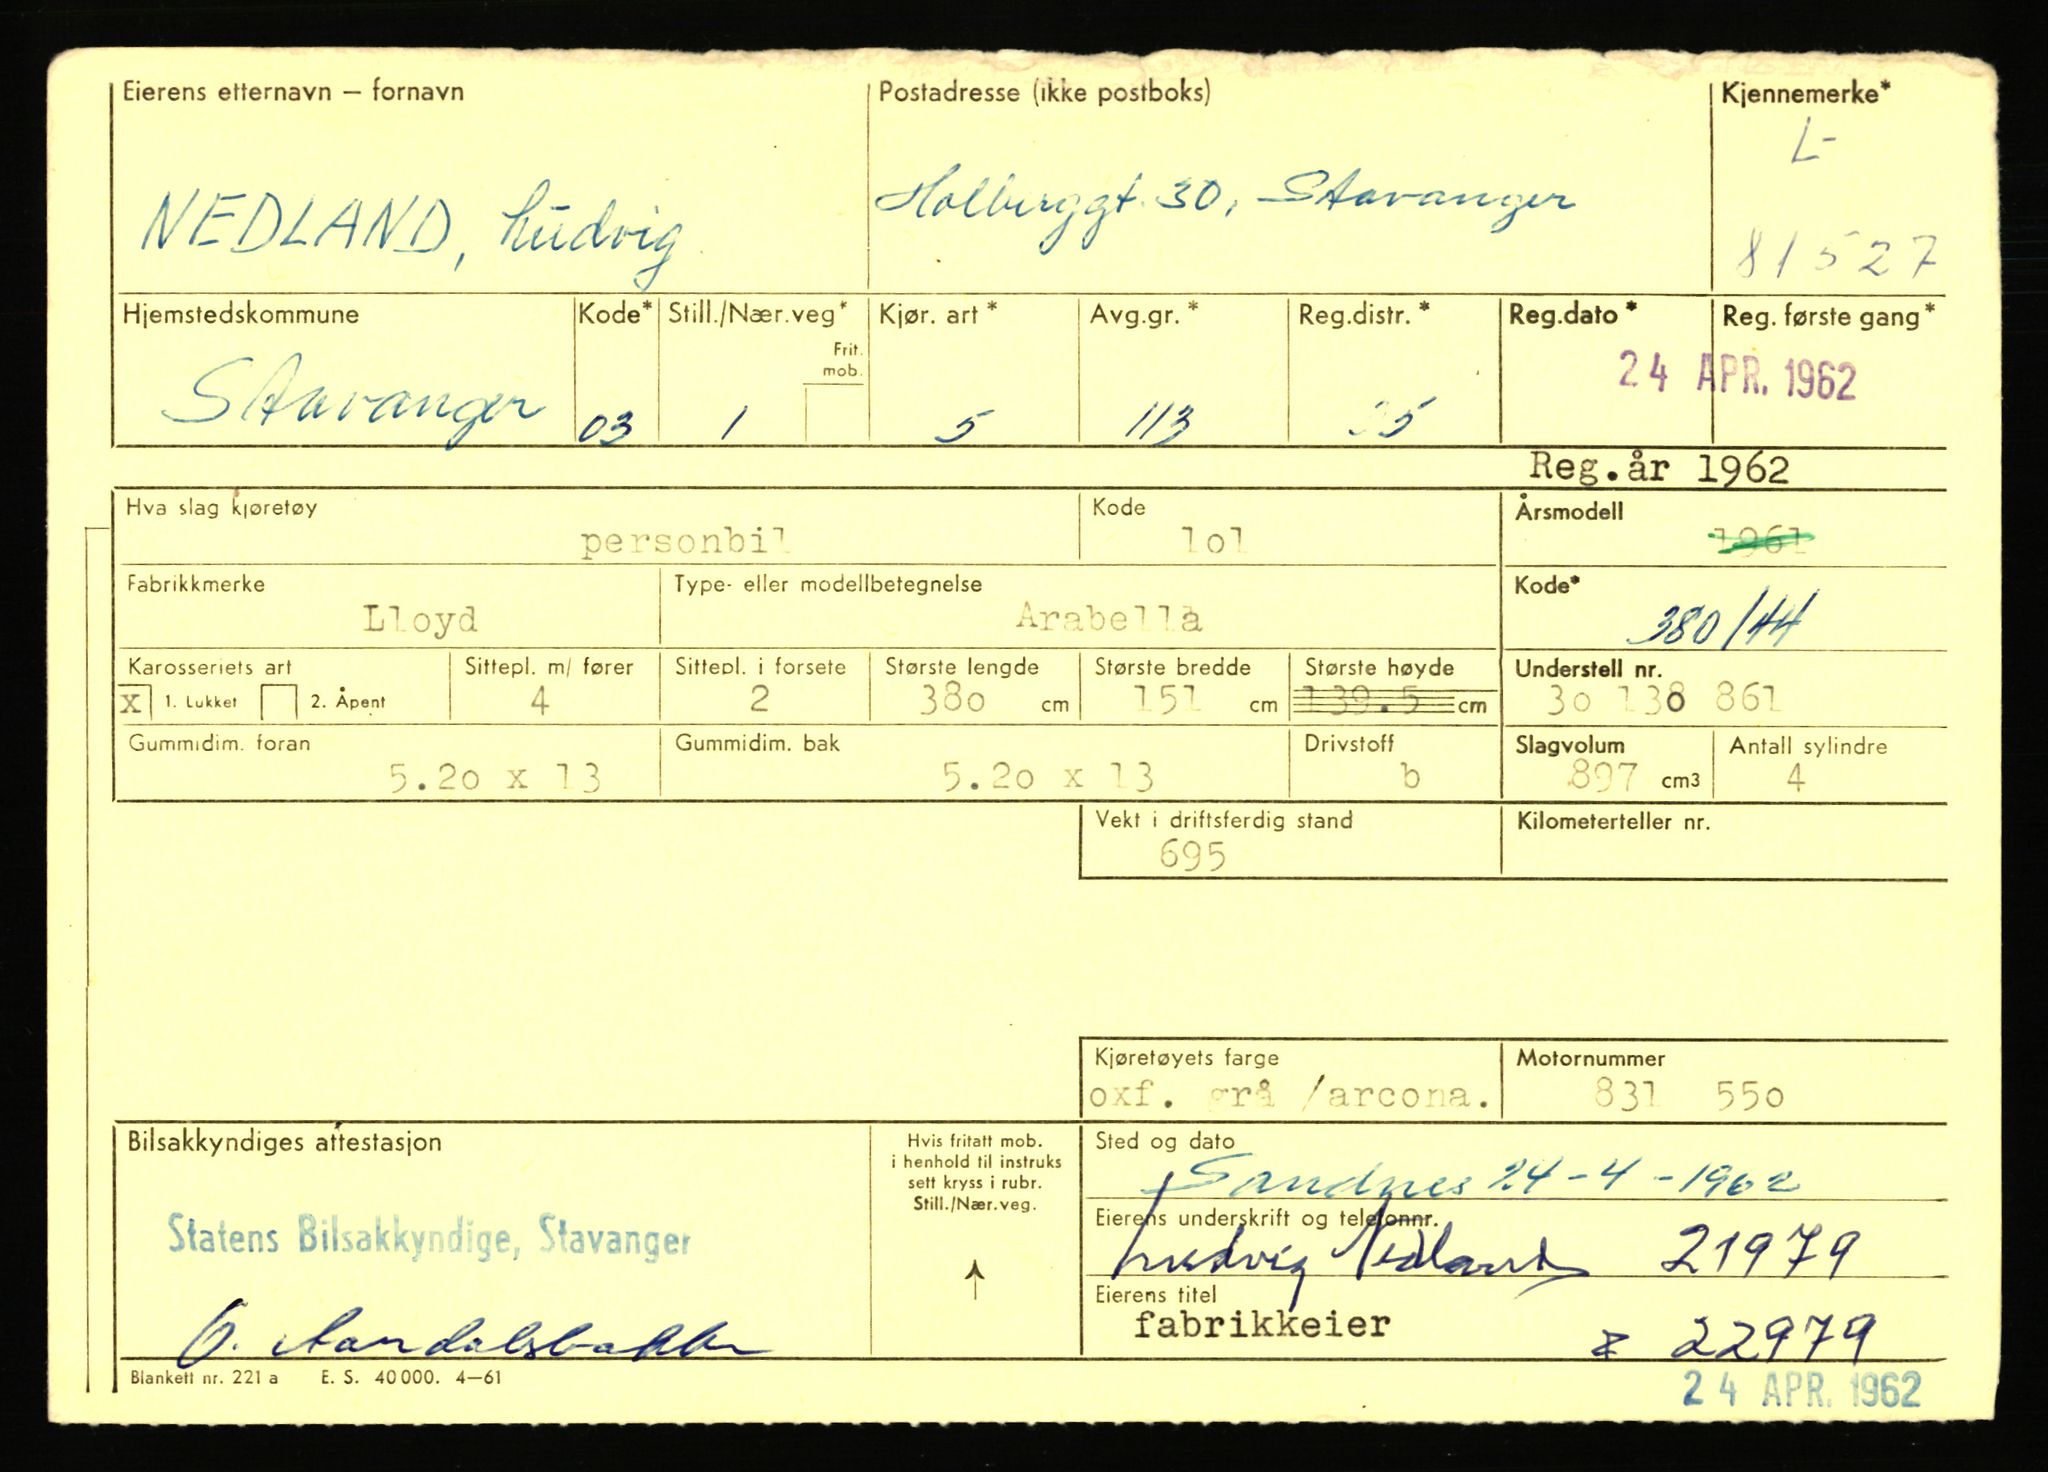 Eierens etternavn – fornavn Postadresse (ikke postboks) Kjennemerke*
L-
NEDLAND, Ludvig Holberggt. 30, Stavanger
81527
Hjemstedskommune Kode* Still./Nær.veg* Kjør. art* Avg.gr.* Reg.distr.* Reg.dato* Reg. første gang*
Frit. mob.
24 APR. 1962
Stavanger 03 1 5 113 25
Reg.år 1962
Hva slag kjøretøy Kode Årsmodell
personbil lol 1961
Fabrikkmerke Type- eller modellbetegnelse Kode*
Lloyd Arabella 380/44
Karosseriets art Sittepl. m/ fører Sittepl. i forsete Største lengde Største bredde Største høyde Understell nr.
x 1. Lukket 2. Åpent 4 2 380 cm 151 cm 139.5 cm 3o 138 861
Gummidim. foran Gummidim. bak Drivstoff Slagvolum Antall sylindre
5.2o x 13 5.2o x 13 b 897 cm3 4
Vekt i driftsferdig stand Kilometerteller nr.
695
Kjøretøyets farge Motornummer
oxf. grå /arcona. 831 55o
Bilsakkyndiges attestasjon Hvis fritatt mob. Sted og dato
i henhold til instruks
sett kryss i rubr.
Still./Nær.veg.
Sandnes 24-4-1962
Eierens underskrift og telefonnr.
Statens Bilsakkyndige, Stavanger
Ludvig Nedland 21979
Eierens titel
fabrikkeier
22979
Blankett nr. 221 a E. S. 40 000. 4–61
24 APR. 1962